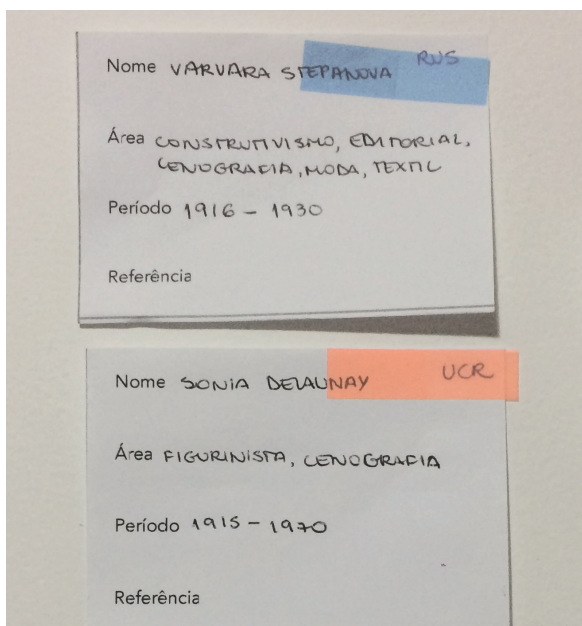 Nome VARVARA STEPANOVA RUS
Área CONSTRUTIVISMO, EDITORIAL,
CENOGRAFIA, MODA, TEXTIL
Período 1916 - 1930
Referência
Nome SONIA DELAUNAY UCR
Área FIGURINISTA, CENOGRAFIA
Período 1915 - 1970
Referência